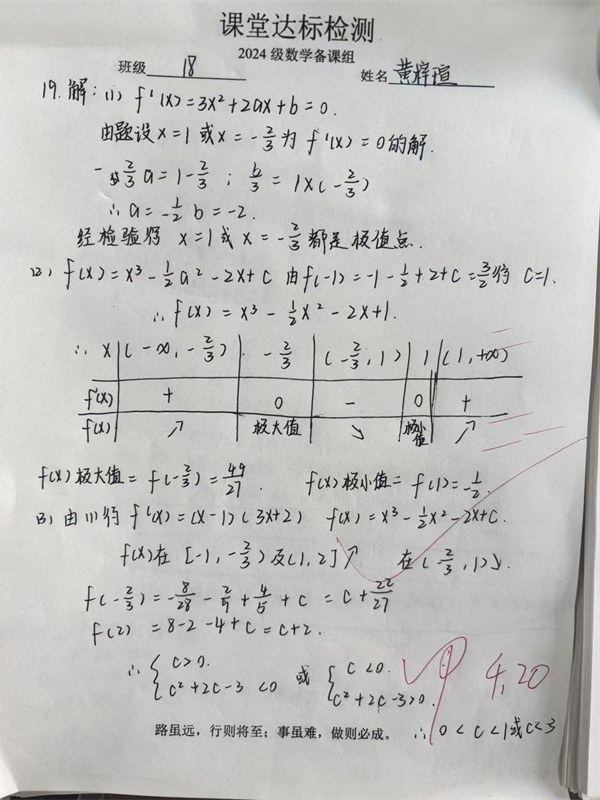 课堂达标检测
2024 级数学备课组
班级 18 姓名 黄梓瑄
19. 解: (1) f'(x)=3x²+2ax+b=0.
由题设 x=1 或 x=-2/3 为 f'(x)=0 的解.
-2/3 a=1-2/3 ; b/3=1×(-2/3)
∴ a=-1/2 b=-2.
经检验得 x=1 或 x=-2/3 都是极值点.
(2) f(x)=x³-1/2a²-2x+c 由 f(-1)=-1-1/2+2+c=3/2 得 c=1.
∴ f(x)=x³-1/2x²-2x+1.
∴ x (-∞,-2/3) -2/3 (-2/3,1) 1 (1,+∞)
f'(x) + 0 - 0 +
f(x) ↗ 极大值 ↘ 极小值 ↗
f(x)极大值=f(-2/3)=49/27 f(x)极小值=f(1)=-1/2.
(3) 由(1)得 f'(x)=(x-1)(3x+2) f(x)=x³-1/2x²-2x+c.
f(x)在 [-1,-2/3) 及(1,2]↗ 在(-2/3,1)↘
f(-2/3)=-8/28-2/9+4/5+c=c+22/27
f(2)=8-2-4+c=c+2.
∴ {c>0. 或 {c<0.
c²+2c-3<0 c²+2c-3>0.
4.20
路虽远，行则将至；事虽难，做则必成。 ∴ 0<c<1或c<3